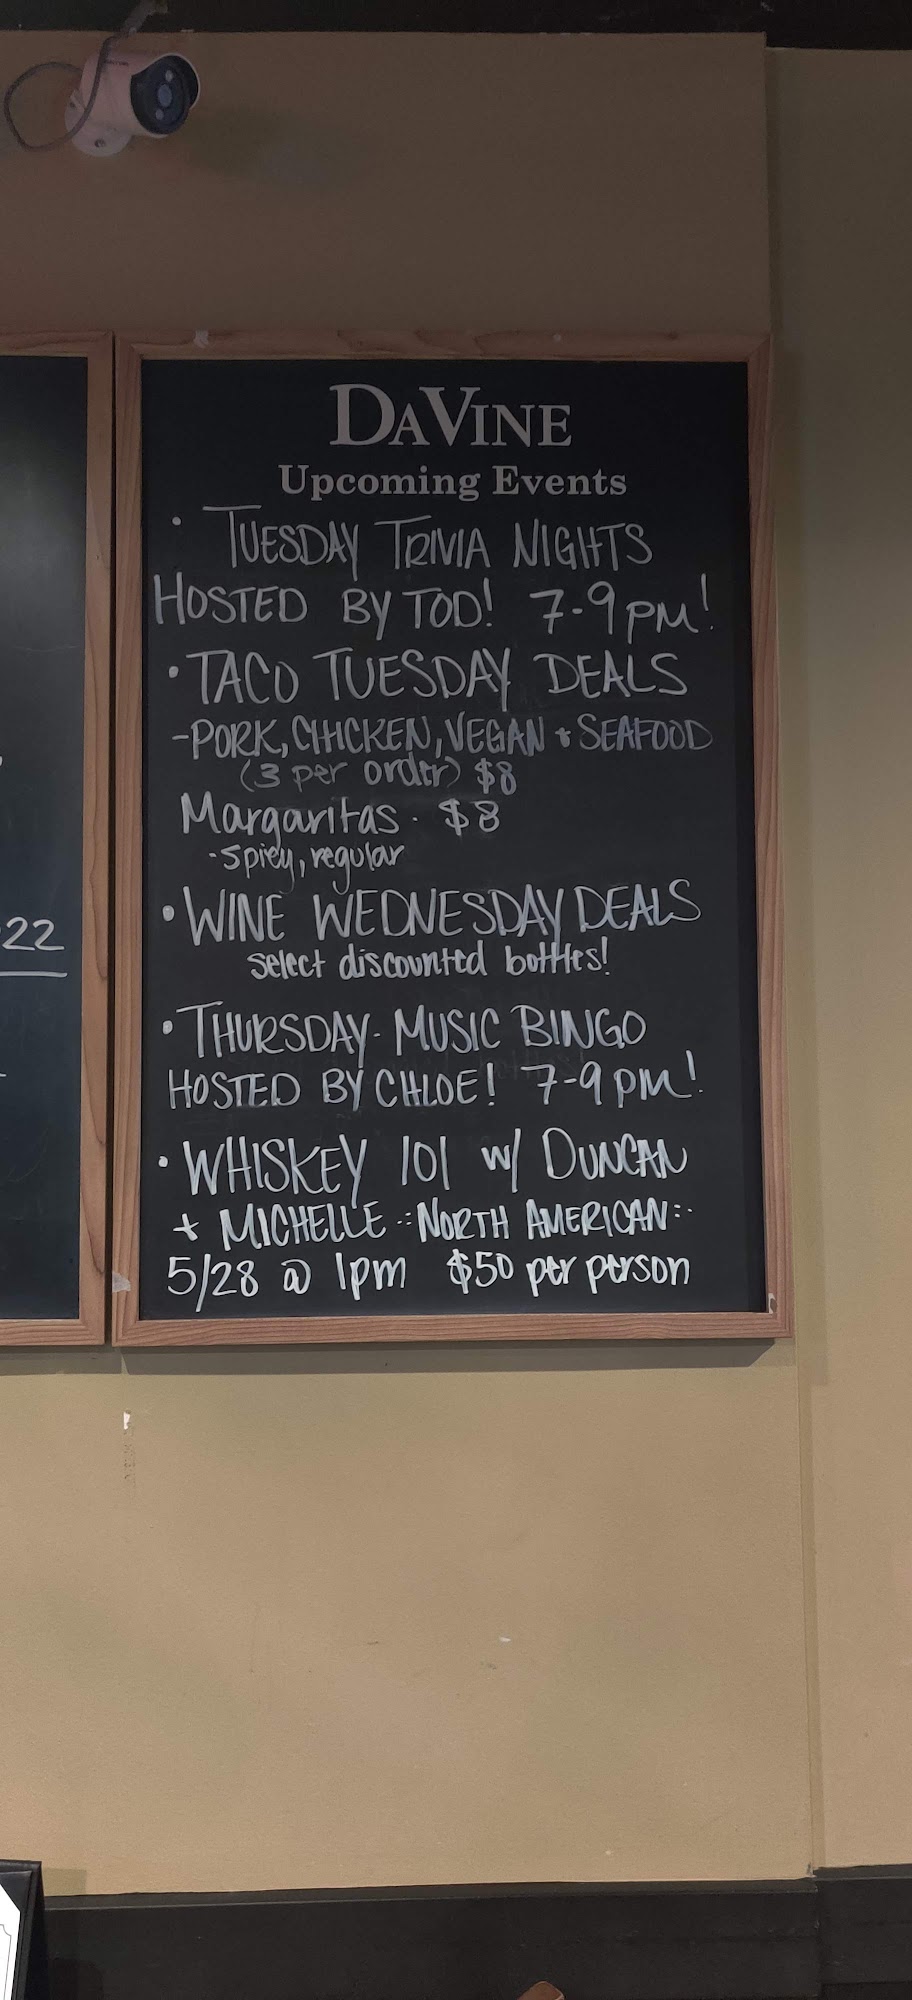 DAVINE
Upcoming Events
• TUESDAY TRIVIA NIGHTS
HOSTED BY TOD! 7-9pm!
• TACO TUESDAY DEALS
-PORK, CHICKEN, VEGAN + SEAFOOD
(3 per order) $8
Margaritas - $8
-Spicy, regular
• WINE WEDNESDAY DEALS
select discounted bottles!
• THURSDAY- MUSIC BINGO
HOSTED BY CHLOE! 7-9pm!
• WHISKEY 101 w/ DUNCAN
+ MICHELLE -:NORTH AMERICAN:-
5/28 @ 1pm $50 per person
22